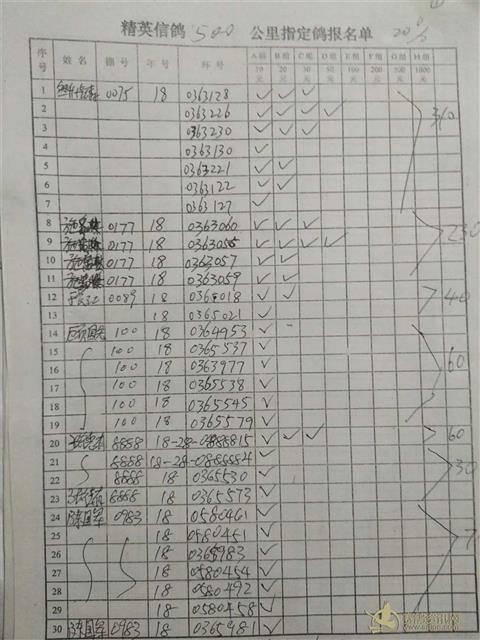 精英信鸽 500 公里指定鸽报名单 20%
序号 姓名 棚号 年号 环号 A组10元 B组20元 C组30元 D组50元 E组100元 F组200元 G组500元 H组1000元
1 0075 18 0363128 ✓ ✓ ✓
2 0363226 ✓ ✓ ✓ ✓
3 0363230 ✓ ✓ ✓
4 0363130 ✓
5 0363221 ✓ ✓
6 0363122 ✓ ✓
7 0363127 ✓
8 0177 18 0363060 ✓ ✓ ✓
9 0177 18 ✓ ✓ ✓ ✓
10 0177 18 0363057 ✓ ✓
11 0177 18 0363059 ✓ ✓
230
12 0089 18 ✓ ✓
13 18 0365021 ✓
40
14 100 18 0364953 ✓
15 100 18 0365537 ✓
16 100 18 0363977 ✓
17 100 18 0365538 ✓
18 100 18 0365545 ✓
19 100 18 0365579 ✓
60
20 8888 18-28-0888815 ✓ ✓ ✓
60
21 8888 18-28-0888884 ✓
22 8888 18 0365530 ✓
23 8888 18 0365573 ✓
30
24 陈国军 0983 18 0580461 ✓
25 18 0580451 ✓
26 18 0365983 ✓
27 18 0580454 ✓
28 18 0580492 ✓
29 18 0580458 ✓
30 陈国军 0983 18 0365981 ✓